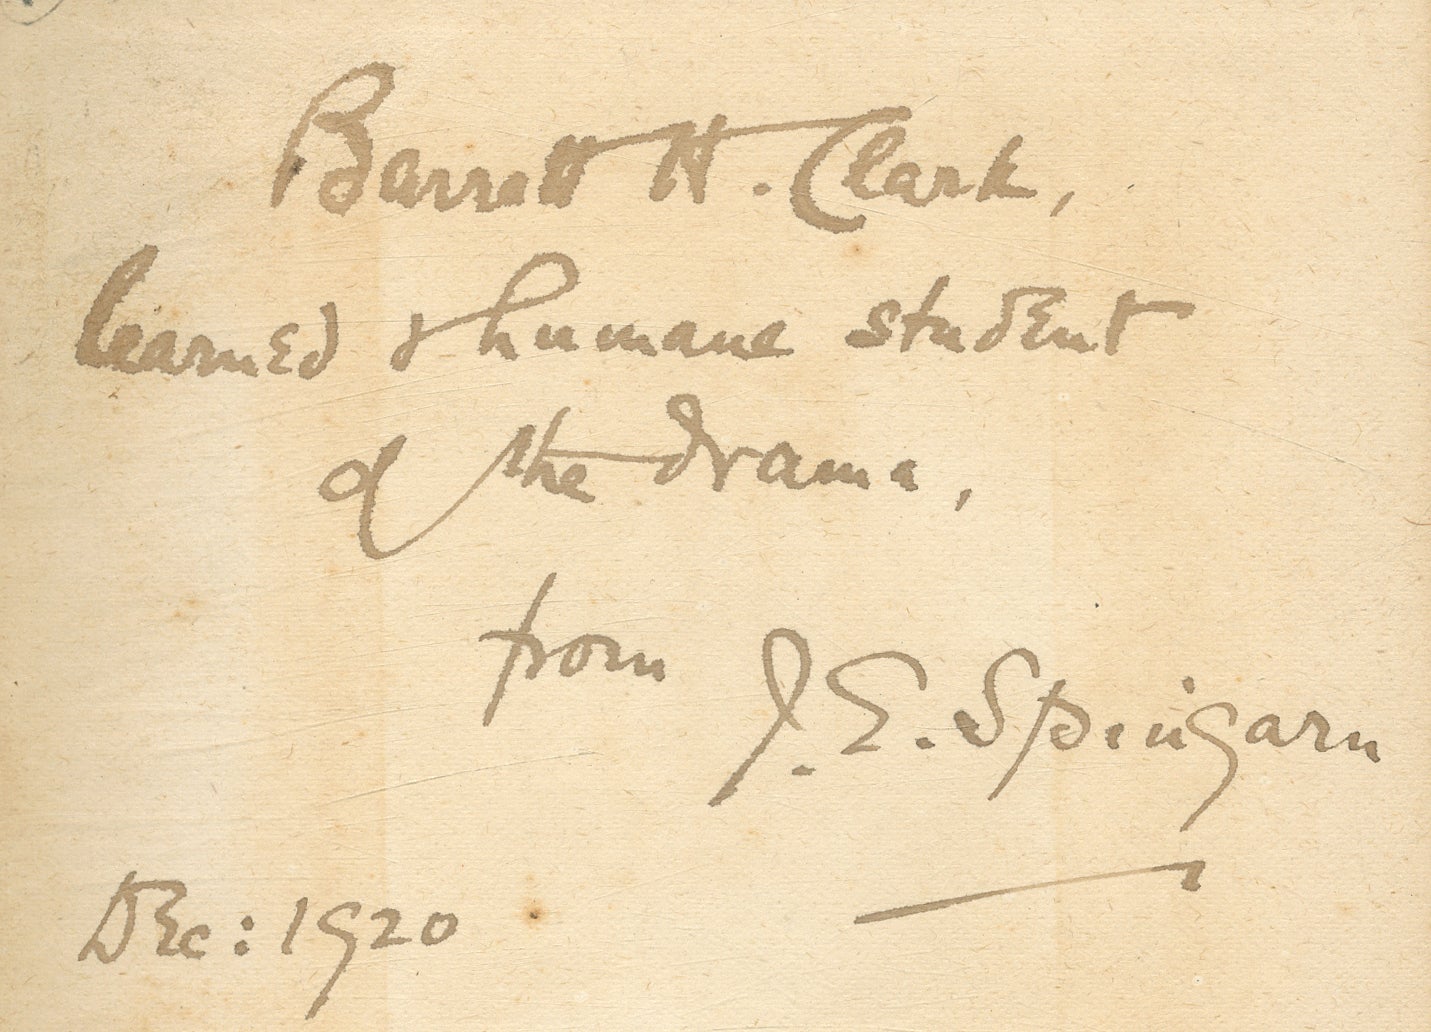 Barrett H. Clark,
learned & humane student
of the drama,
from J. E. Spingarn
Dec: 1920